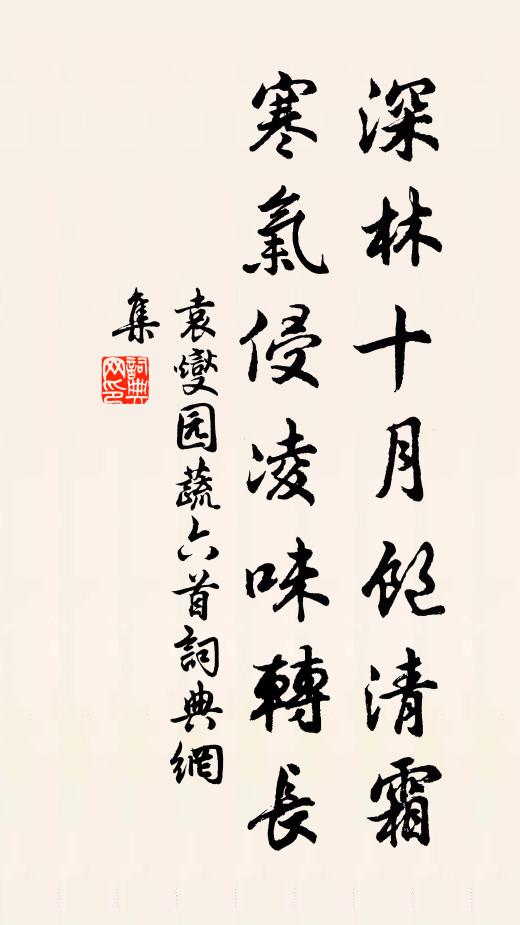 深林十月飽清霜
寒氣侵凌味轉長
袁燮园蔬六首詞典網
集
詞典网印